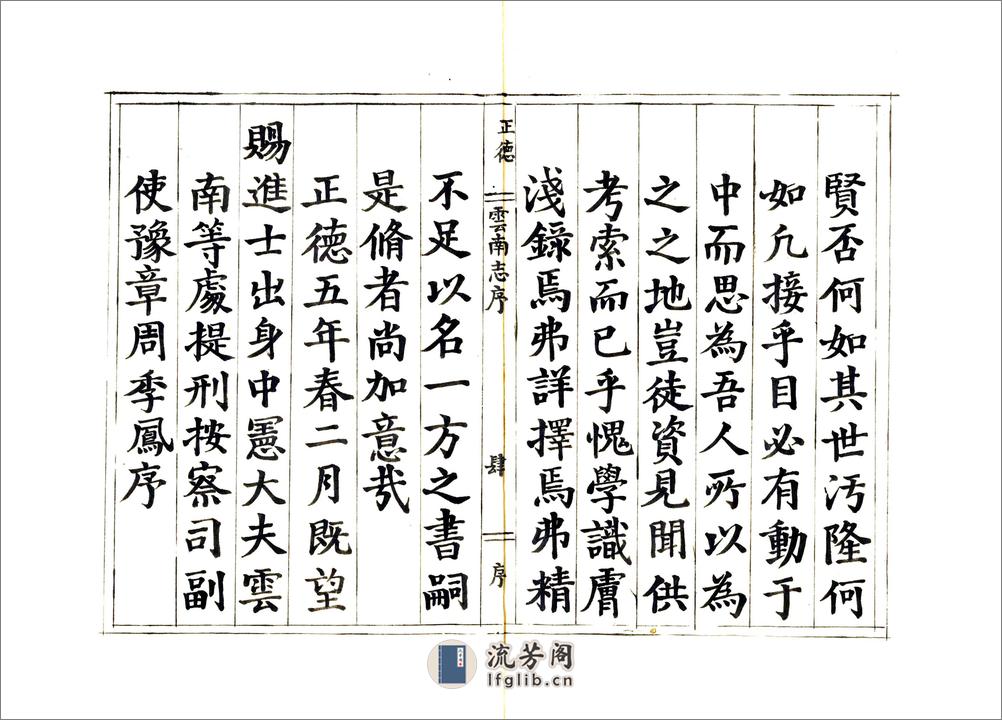 賢否何如其世汚隆何
如凢接乎目必有動于
中而思為吾人所以為
之之地豈徒資見聞供
考索而已乎愧學識膚
淺錄焉弗詳擇焉弗精
正德 雲南志序 肆 序
不足以名一方之書嗣
是脩者尚加意㢤
正德五年春二月既望
賜進士出身中憲大夫雲
南等處提刑按察司副
使豫章周季鳳序
流芳阁
lfglib.cn